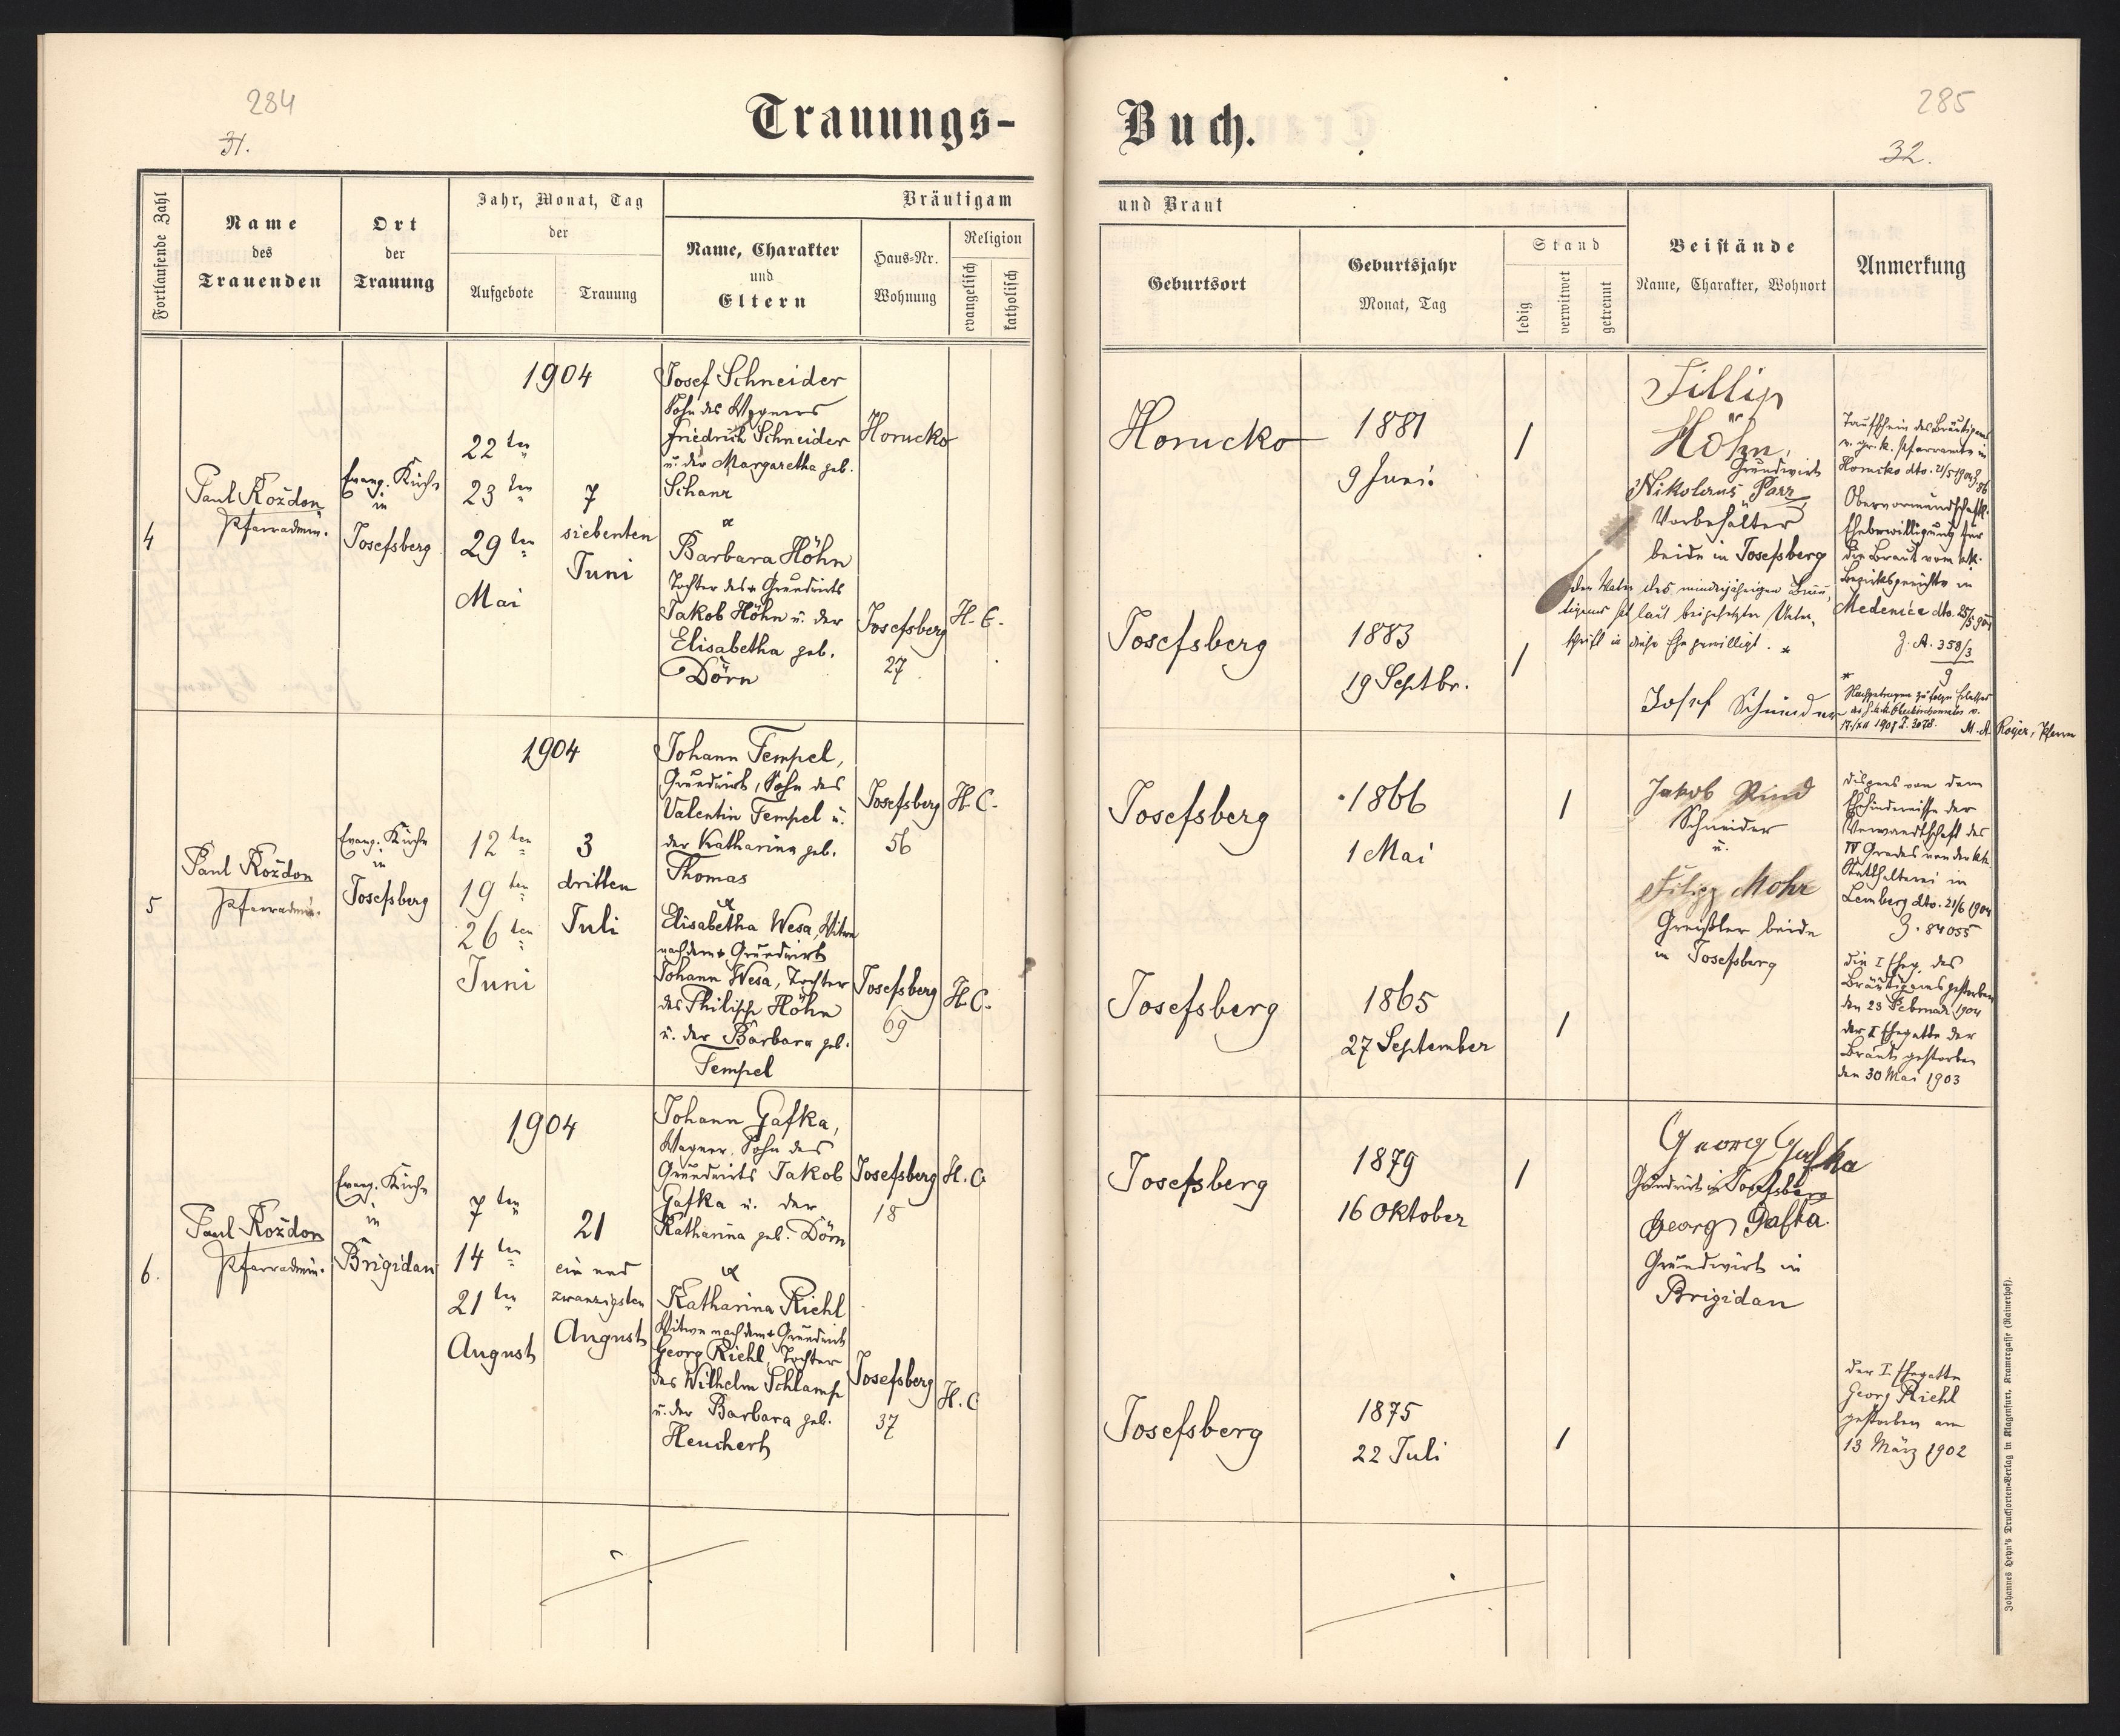 284
31.
Trauungs-
Fortlaufende Zahl
Name
des
Trauenden
Ort
der
Trauung
Jahr, Monat, Tag
der
Aufgebote
Trauung
Bräutigam
Name, Charakter
und
Eltern
Haus-Nr.
Wohnung
Religion
evangelisch
katholisch
4
Paul Roždon
Pfarradmin.
Evang. Kirche
in
Josefsberg
1904
22 ten
23 ten
29 ten
Mai
7
siebenten
Juni
Josef Schneider
Sohn des Wagners
Friedrich Schneider
u. der Margaretha geb.
Schanz
&
Barbara Höhn
Tochter des + Grundwirts
Jakob Höhn u. der
Elisabetha geb.
Dörn
Horucko
Josefsberg
27
H. C.
5
Paul Roždon
Pfarradmin.
Evang. Kirche
in
Josefsberg
1904
12 ten
19 ten
26 ten
Juni
3
dritten
Juli
Johann Tempel,
Grundwirt, Sohn des
Valentin Tempel u.
der Katharina geb.
Thomas
&
Elisabetha Wesa, Witwe
nach dem + Grundwirt
Johann Wesa, Tochter
des Philipp Höhn
u. der Barbara geb.
Tempel
Josefsberg
56
H. C.
Josefsberg
69
H. C.
6.
Paul Roždon
Pfarradmin.
Evang. Kirche
in
Brigidau
1904
7 ten
14 ten
21 ten
August
21
ein und
zwanzigsten
August
Johann Gafka,
Wagner, Sohn des
Grundwirts Jakob
Gafka u. der
Katharina geb. Dörn
&
Katharina Riehl
Witwe nach dem + Grundwirt
Georg Riehl, Tochter
des Wilhelm Schlamp
u. der Barbara geb.
Heuchert
Josefsberg
18
H. C
Josefsberg
37
H. C
285
32.
Buch.
und Braut
Geburtsort
Geburtsjahr
Monat, Tag
Stand
ledig
verwitwet
getrennt
Beistände
Name, Charakter, Wohnort
Anmerkung
Horucko
1881
9 Juni.
/
Josefsberg
1883
19 Septbr.
/
Fillip
Höhn,
Grundwirt
Nikolaus Parr
Vorbehälter
beide in Josefsberg
der Vater des minderjährigen Bräu-
tigams hat laut beigesetzter Unter-
schrift in diese Ehe gewilligt. *
Josef Schneider
Taufschein des Bräutigams
v. gr. k. Pfarramte in
Horucko dto. 21/5 1904
Obervormundschaftl.
Ehebewilligung für
die Braut vom k.k.
Bezirksgerichte in
Medenice dto. 25/5 904
Z. A. 358/3
9
*
Nachgetragen zufolge Erlasses
17./XII 1907 Z. 3078.
M. A. Royer, Pfarrer
Josefsberg
1866
1 Mai
/
Josefsberg
1865
27 September
/
Jakob Rind
Schneider
u.
Filipp Mohr
Greißler beide
in Josefsberg
dispens von dem
Ehehindernisse der
Verwandtschaft des
IV Grades von der k.k.
Statthalterei in
Lemberg dto. 21/6 1904
Z. 84055
die I Eheg. des
Bräutigams gestorben
den 23 Februar 1904
der I Ehegatte der
Braut gestorben
den 30 Mai 1903
Josefsberg
1879
16 Oktober
/
Josefsberg
1875
22 Juli
/
Georg Gafka
Grundwirt in Josefsberg
Georg Gafka.
Grundwirt in
Brigidau
der I Ehegatte
Georg Riehl
gestorben am
13 März 1902
Johannes Heyn's Drucksorten-Verlag in Klagenfurt, Kramergasse (Rainerhof).